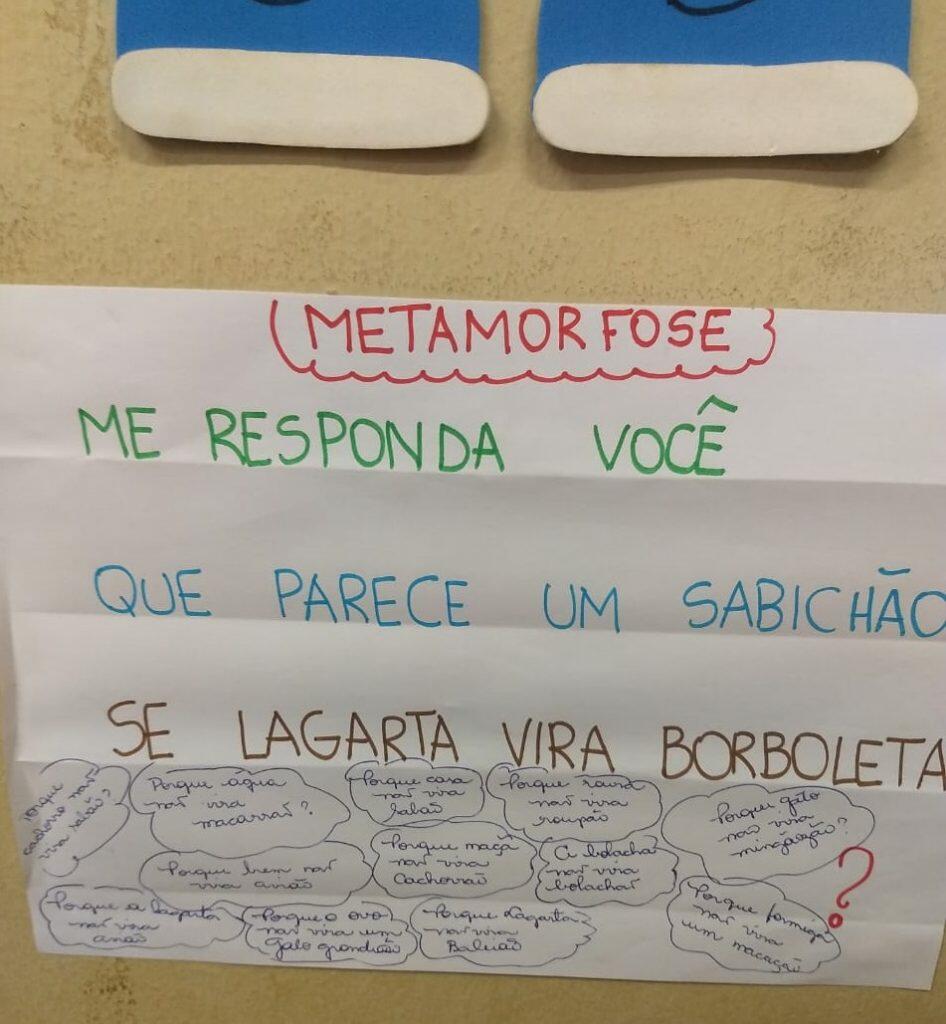 METAMORFOSE
ME RESPONDA VOCÊ
QUE PARECE UM SABICHÃO
SE LAGARTA VIRA BORBOLETA
Porque
cachorro não
vira sabão?
Porque água
não vira
macarrão?
Porque casa
não vira
sabão
Porque
não vira
roupão
Porque gato
não vira
?
Porque trem não
vira avião
Porque maçã
não vira
Cachorrão
A bolacha
não vira
bolachão
?
Porque a lagarta
não vira
Porque o ovo
não vira um
Galo grandão
Porque Lagarta
não vira
Baleião
Porque formiga
não vira
um macacão